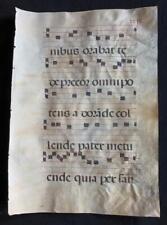 nibus orabat te
de precor omnipo
tens adorãde col
lende pater metu
ende quia per fan